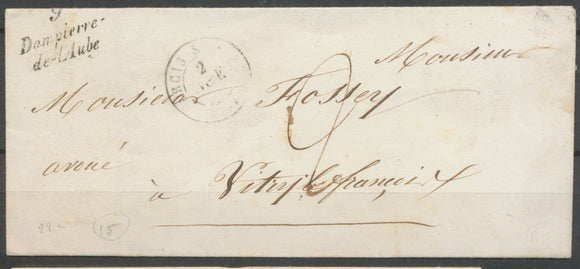 9
Dampierre-
de-l'Aube
ARCIS-S
2
Monsieur
Monsieur Fossey
avoué
à Vitry le françois
22-
15